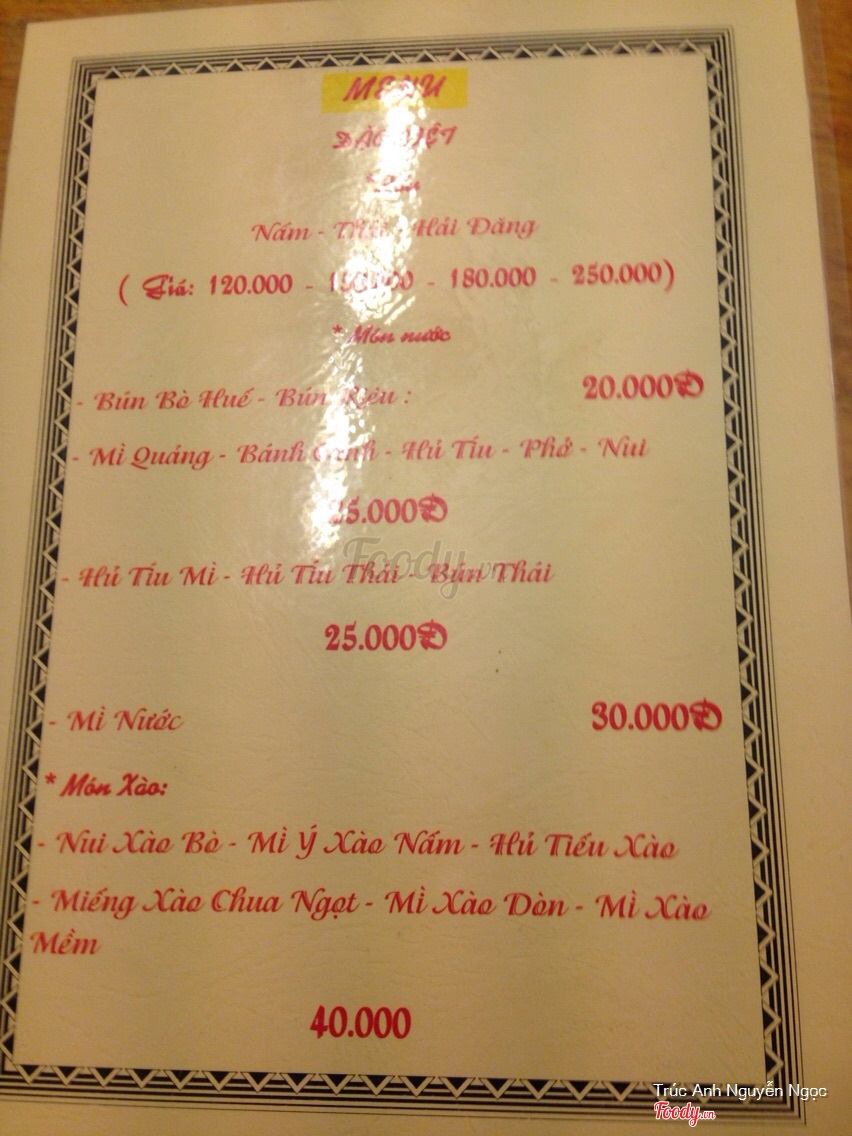 MENU
ĐẶC BIỆT
Lẩu
Nấm - Thái - Hải Đăng
( Giá: 120.000 - - 180.000 - 250.000)
* Món nước
- Bún Bò Huế - Bún Riêu : 20.000Đ
- Mì Quảng - Bánh Canh - Hủ Tíu - Phở - Nui
25.000Đ
Foody.vn
- Hủ Tíu Mì - Hủ Tíu Thái - Bún Thái
25.000Đ
- Mì Nước 30.000Đ
* Món Xào:
- Nui Xào Bò - Mì Ý Xào Nấm - Hủ Tiếu Xào
- Miếng Xào Chua Ngọt - Mì Xào Dòn - Mì Xào
Mềm
40.000
Trúc Anh Nguyễn Ngọc
Foody.vn